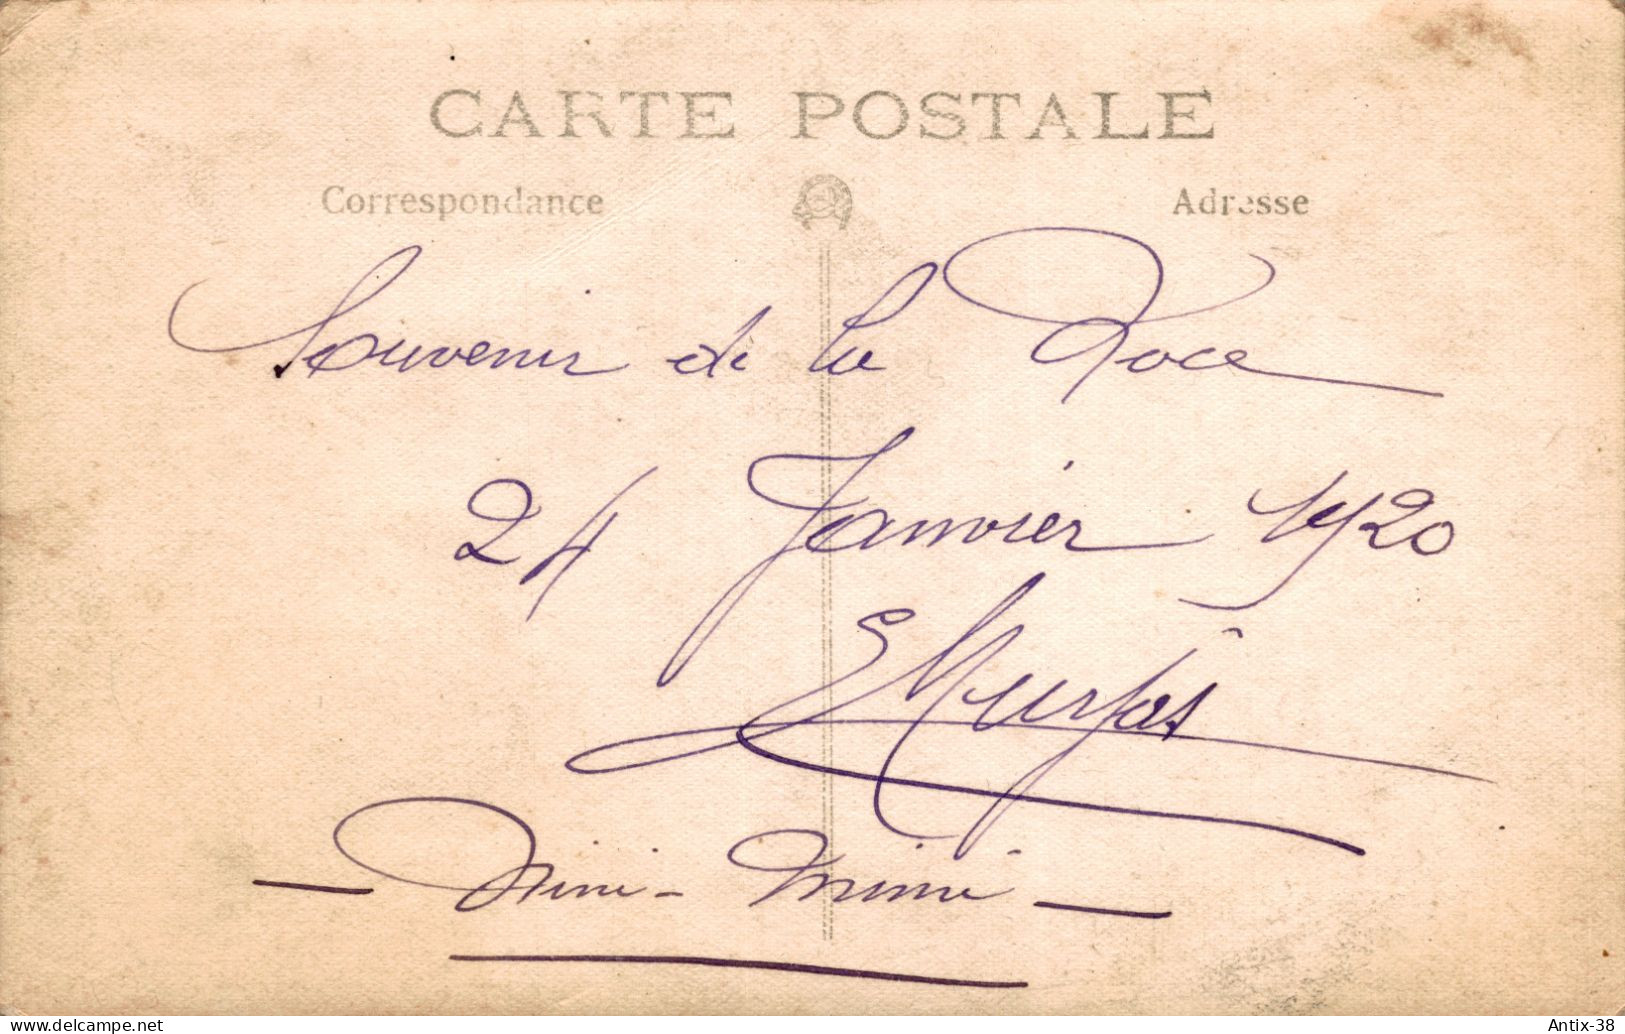 CARTE POSTALE
Correspondance Adresse
Souvenir de la
24 Janvier 1920
Nini - Mimi
www.delcampe.net Antix-38